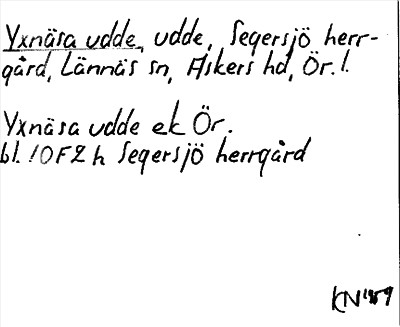 Yxnäsa udde, udde, Segersjö herr-
gård, Lännäs sn, Askers hd, Ör. l.
Yxnäsa udde ek Ör.
bl. 10F2h Segersjö herrgård